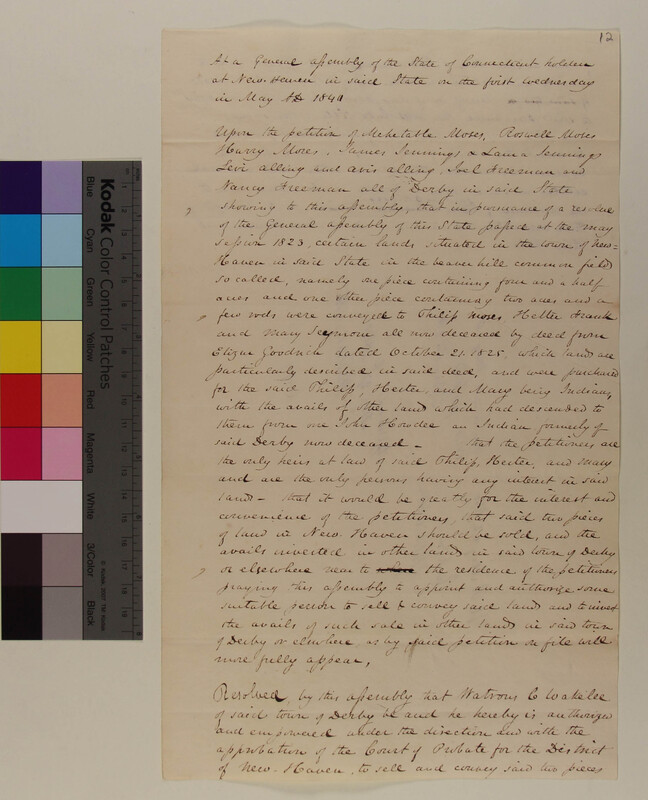 12
At a General assembly of the State of Connecticut holden
at New-Haven in said State on the first Wednesday
in May AD 1840
Upon the petition of Mehetable Moses, Roswell Moses
Harry Moses, James Jennings & Laura Jennings
Levi alling and avis alling, Joel Freeman and
Nancy Freeman all of Derby in said State
showing to this assembly, that in pursuance of a resolve
of the General assembly of this State passed at the may
Session 1823, certain lands situated in the town of New=
Haven in said State in the beaver hill common field
so called, namely one piece containing four and a half
acres and one other piece containing two acres and a
few rods were conveyed to Philip Moses, Hester Frank
and Mary Seymour all now deceased by deed from
Elizur Goodrich dated October 21. 1825, which land are
particularly described in said deed, and were purchased
for the said Philip, Hester, and Mary being Indians,
with the avails of other land which had descended to
them from one John Howdee an Indian formerly of
said Derby now deceased — that the petitioners are
the only heirs at law of said Philip, Hester, and Mary
and are the only persons having any interest in said
land — that it would be greatly for the interest and
convenience of the petitioners, that said two pieces
of land in New Haven should be sold, and the
avails invested in other land in said town of Derby
or elsewhere near to the residence of the petitioners
praying this assembly to appoint and authorize some
suitable person to sell & convey said land and to invest
the avails of such sale in other land in said town
of Derby or elsewhere, as by said petition on file will
more fully appear,
Resolved, by this assembly that Watrous C Wakelee
of said town of Derby be and he hereby is authorized
and empowered under the direction and with the
approbation of the Court of Probate for the District
of New-Haven, to sell and convey said two pieces
Kodak Color Control Patches
Blue
Cyan
Green
Yellow
Red
Magenta
White
3/Color
Black
© Kodak, 2007 TM: Kodak